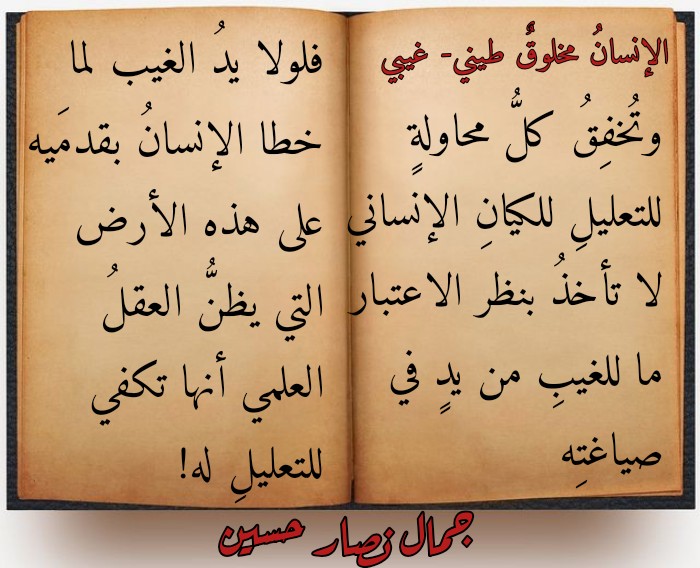 الإنسانُ مخلوقٌ طيني- غيبي
وتُخفِقُ كلُّ محاولةٍ
للتعليلِ للكيانِ الإنساني
لا تأخذُ بنظر الاعتبار
ما للغيبِ من يدٍ في
صياغتِه
فلولا يدُ الغيب لما
خطا الإنسانُ بقدمَيه
على هذه الأرض
التي يظنُّ العقلُ
العلمي أنها تكفي
للتعليلِ له!
جمال نصار حسين